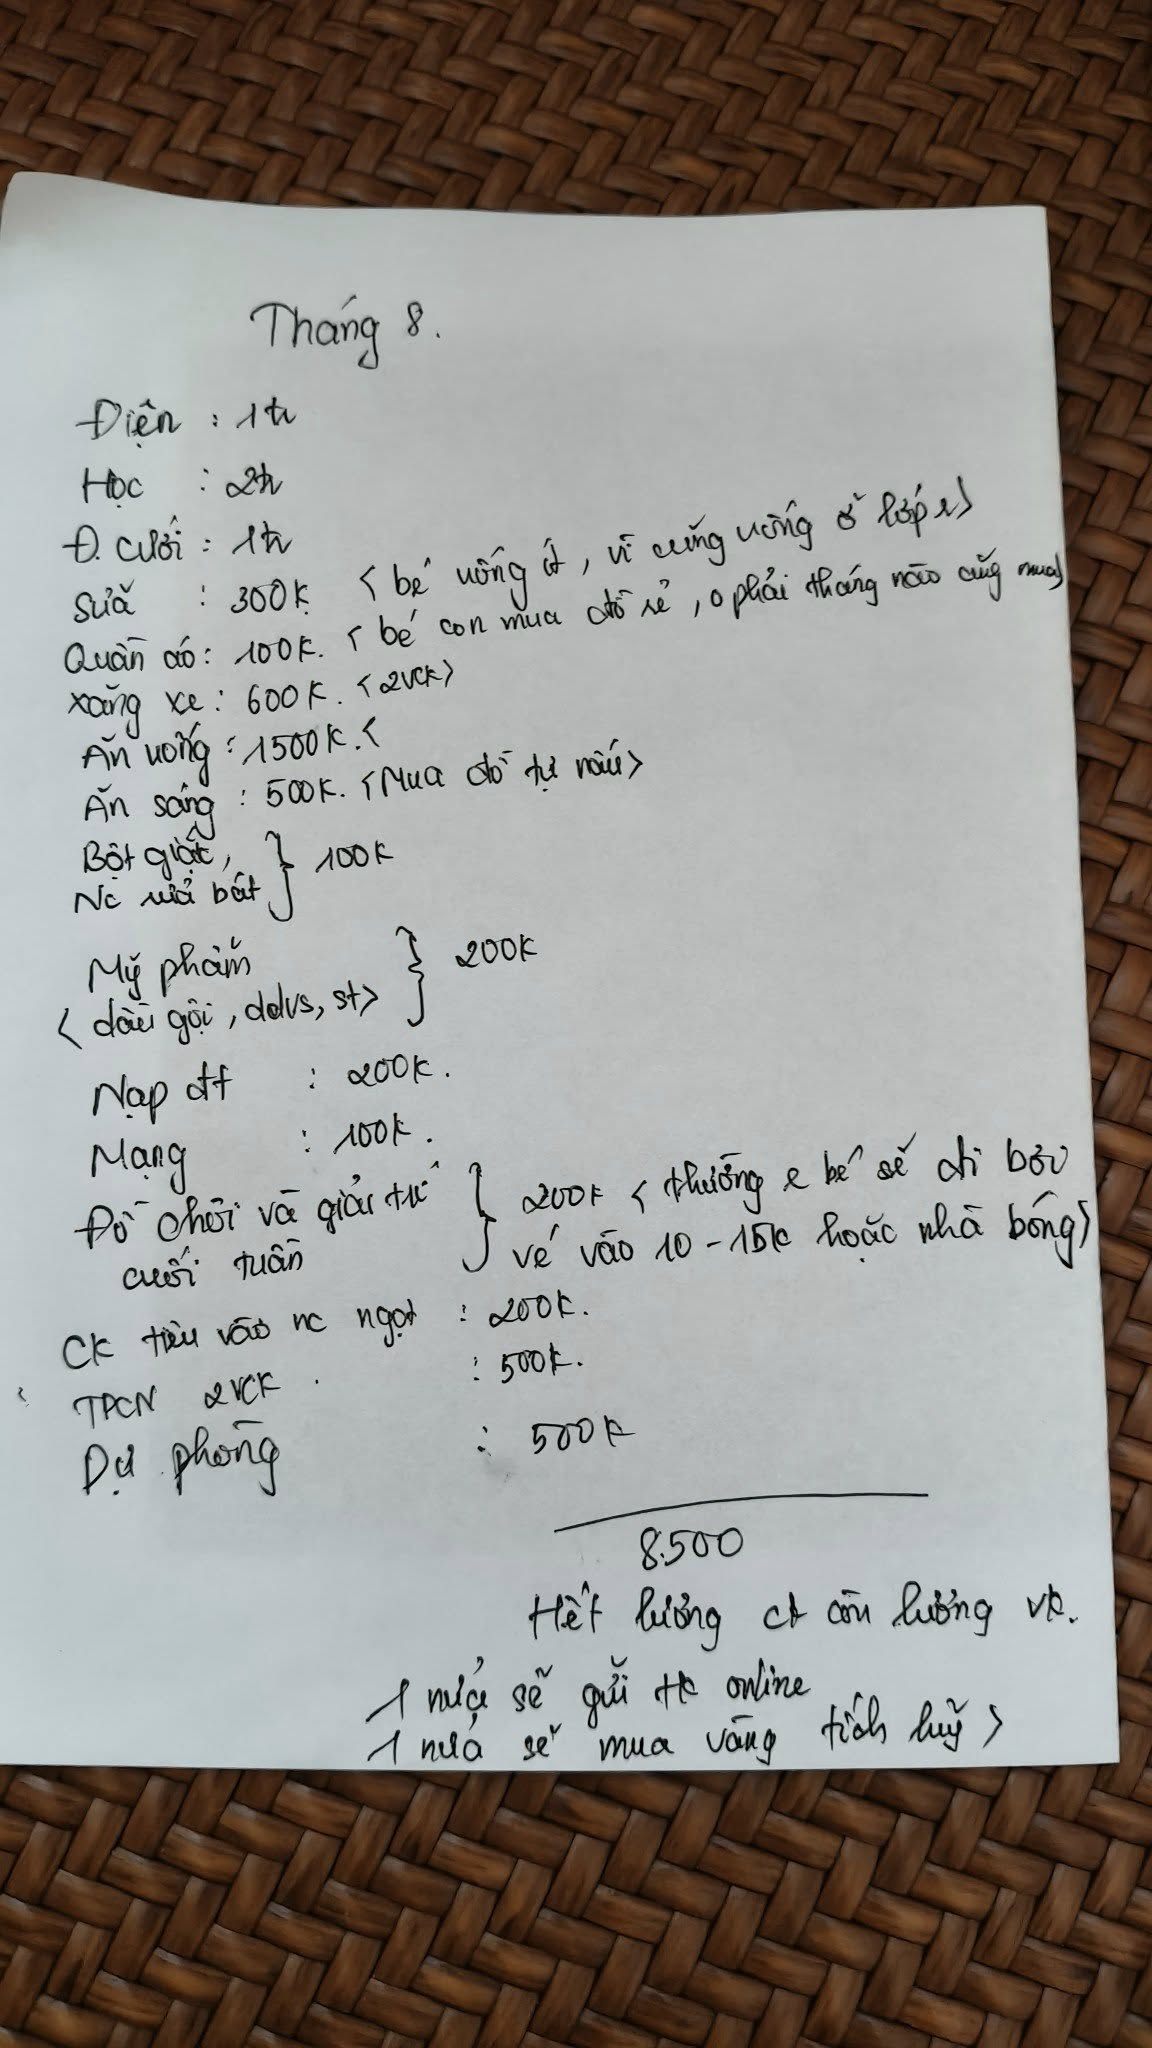 Tháng 8.
Điện : 1tr
Học : 2tr
Đ. cưới : 1tr
Sữa : 300k < bé uống ít, vì cũng uống ở lớp r>
Quần áo : 100k. < bé con mua đồ rẻ, 0 phải tháng nào cũng mua>
Xăng xe : 600k. <2vck>
Ăn uống : 1500k. <
Ăn sáng : 500k. <Mua đồ tự nấu>
Bột giặt, } 100k
Nc rửa bát
Mỹ phẩm } 200k
< dầu gội, ddvs, st>
Nạp đt : 200k.
Mạng : 100k.
Đồ chơi và giải trí } 200k < thường e bé sẽ đi bơi
cuối tuần vé vào 10 - 15k hoặc nhà bóng>
CK tiêu vào nc ngọt : 200k.
TPCN 2VCK : 500k.
Dự phòng : 500k
8.500
Hết lương ck còn lương vk.
1 nửa sẽ gửi tk online
1 nửa sẽ mua vàng tích luỹ >